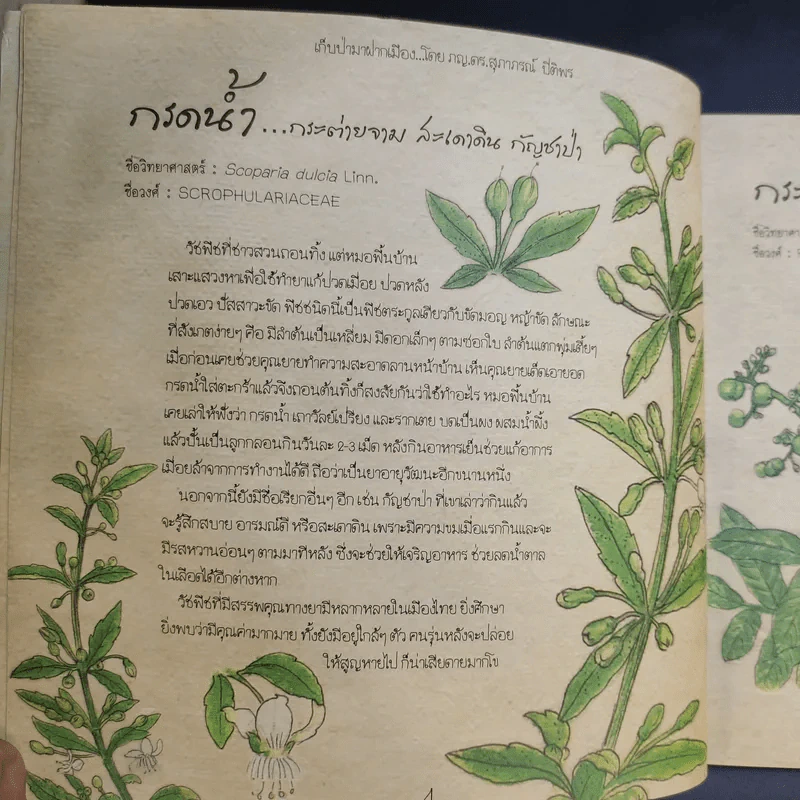 เก็บป่ามาฝากเมือง...โดย ภญ.ดร.สุภาภรณ์ ปิติพร
กรดน้ำ...กระต่ายจาม สะเดาดิน กัญชาป่า
ชื่อวิทยาศาสตร์ : Scoparia dulcia Linn.
ชื่อวงศ์ : SCROPHULARIACEAE
วัชพืชที่ชาวสวนถอนทิ้ง แต่หมอพื้นบ้าน
เสาะแสวงหาเพื่อใช้ทำยาแก้ปวดเมื่อย ปวดหลัง
ปวดเอว ปัสสาวะขัด พืชชนิดนี้เป็นพืชตระกูลเดียวกับขัดมอญ หญ้าขัด ลักษณะ
ที่สังเกตง่ายๆ คือ มีลำต้นเป็นเหลี่ยม มีดอกเล็กๆ ตามซอกใบ ลำต้นแตกพุ่มเตี้ยๆ
เมื่อก่อนเคยช่วยคุณยายทำความสะอาดลานหน้าบ้าน เห็นคุณยายเด็ดเอายอด
กรดน้ำใส่ตะกร้าแล้วจึงถอนต้นทิ้งก็สงสัยกันว่าใช้ทำอะไร หมอพื้นบ้าน
เคยเล่าให้ฟังว่า กรดน้ำ เถาวัลย์เปรียง และรากเตย บดเป็นผง ผสมน้ำผึ้ง
แล้วปั้นเป็นลูกกลอนกินวันละ 2-3 เม็ด หลังกินอาหารเย็นช่วยแก้อาการ
เมื่อยล้าจากการทำงานได้ดี ถือว่าเป็นยาอายุวัฒนะอีกขนานหนึ่ง
นอกจากนี้ยังมีชื่อเรียกอื่นๆ อีก เช่น กัญชาป่า ที่เขาเล่าว่ากินแล้ว
จะรู้สึกสบาย อารมณ์ดี หรือสะเดาดิน เพราะมีความขมเมื่อแรกกินและจะ
มีรสหวานอ่อนๆ ตามมาทีหลัง ซึ่งจะช่วยให้เจริญอาหาร ช่วยลดน้ำตาล
ในเลือดได้อีกต่างหาก
วัชพืชที่มีสรรพคุณทางยามีหลากหลายในเมืองไทย ยิ่งศึกษา
ยิ่งพบว่ามีคุณค่ามากมาย ทั้งยังมีอยู่ใกล้ๆ ตัว คนรุ่นหลังจะปล่อย
ให้สูญหายไป ก็น่าเสียดายมากโข